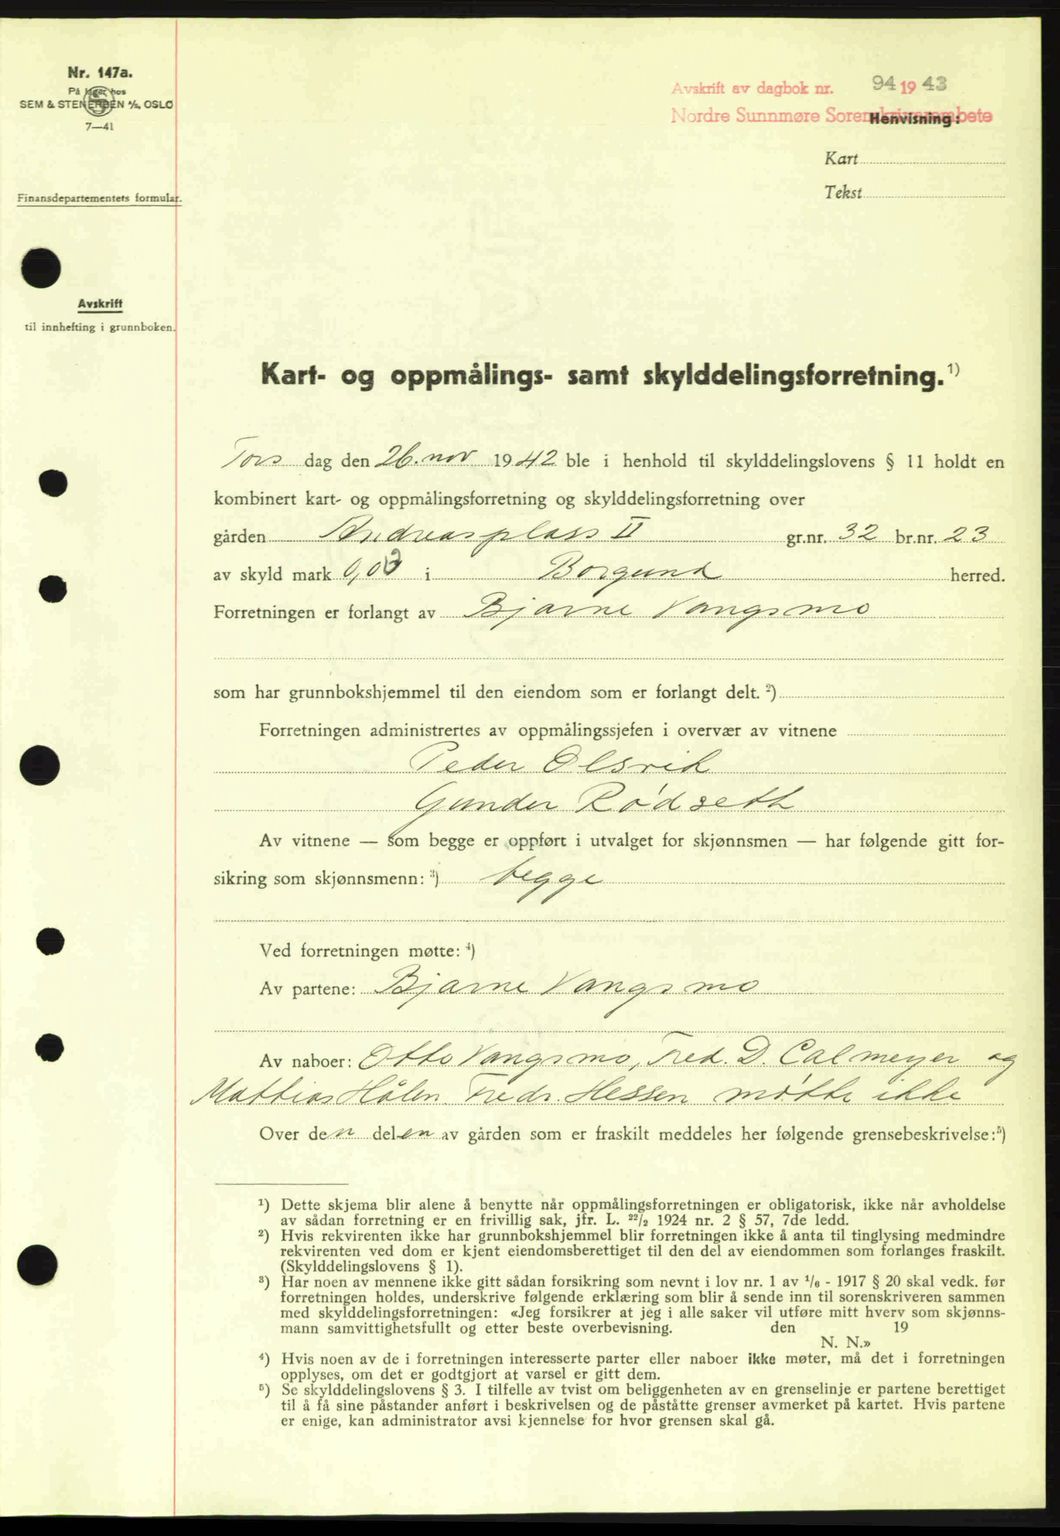 Nr. 147a.
På lager hos
SEM & STENERSEN A/S, OSLO
7—41
Finansdepartementets formular.
Avskrift
til innhefting i grunnboken.
Avskrift av dagbok nr. 94 1943
Nordre Sunnmøre Sorenskriverembete
Henvisning:
Kart
Tekst
Kart- og oppmålings- samt skylddelingsforretning.¹)
Tors dag den 26. nov 1942 ble i henhold til skylddelingslovens § 11 holdt en
kombinert kart- og oppmålingsforretning og skylddelingsforretning over
gården Andreasplass II gr.nr. 32 br.nr. 23
av skyld mark i Borgund herred.
Forretningen er forlangt av Bjarne Vangsmo
som har grunnbokshjemmel til den eiendom som er forlangt delt.²)
Forretningen administrertes av oppmålingssjefen i overvær av vitnene
Peder Olsvik
Gunder Rødseth
Av vitnene — som begge er oppført i utvalget for skjønnsmen — har følgende gitt for-
sikring som skjønnsmenn: ³) begge
Ved forretningen møtte: ⁴)
Av partene: Bjarne Vangsmo
Av naboer: Otto Vangsmo, Fred. D. Calmeyer og
Mattias Hålen. Fredr. Hessen møtte ikke
Over den delen av gården som er fraskilt meddeles her følgende grensebeskrivelse:⁵)
¹) Dette skjema blir alene å benytte når oppmålingsforretningen er obligatorisk, ikke når avholdelse
av sådan forretning er en frivillig sak, jfr. L. ²²/₂ 1924 nr. 2 § 57, 7de ledd.
²) Hvis rekvirenten ikke har grunnbokshjemmel blir forretningen ikke å anta til tinglysing medmindre
rekvirenten ved dom er kjent eiendomsberettiget til den del av eiendommen som forlanges fraskilt.
(Skylddelingslovens § 1).
³) Har noen av mennene ikke gitt sådan forsikring som nevnt i lov nr. 1 av ¹/₆ - 1917 § 20 skal vedk. før
forretningen holdes, underskrive følgende erklæring som blir å sende inn til sorenskriveren sammen
med skylddelingsforretningen: «Jeg forsikrer at jeg i alle saker vil utføre mitt hverv som skjønns-
mann samvittighetsfullt og etter beste overbevisning. den 19
N. N.»
⁴) Hvis noen av de i forretningen interesserte parter eller naboer ikke møter, må det i forretningen
opplyses, om det er godtgjort at varsel er gitt dem.
⁵) Se skylddelingslovens § 3. I tilfelle av tvist om beliggenheten av en grenselinje er partene berettiget
til å få sine påstander anført i beskrivelsen og de påståtte grenser avmerket på kartet. Hvis partene
er enige, kan administrator avsi kjennelse for hvor grensen skal gå.